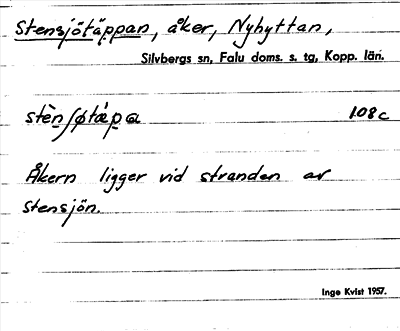 Stensjötäppan, åker, Nyhyttan,
Silvbergs sn, Falu doms. s. tg, Kopp. län.
stènʃøtáp̲a 108c
Åkern ligger vid stranden av
Stensjön.
Inge Kvist 1957.